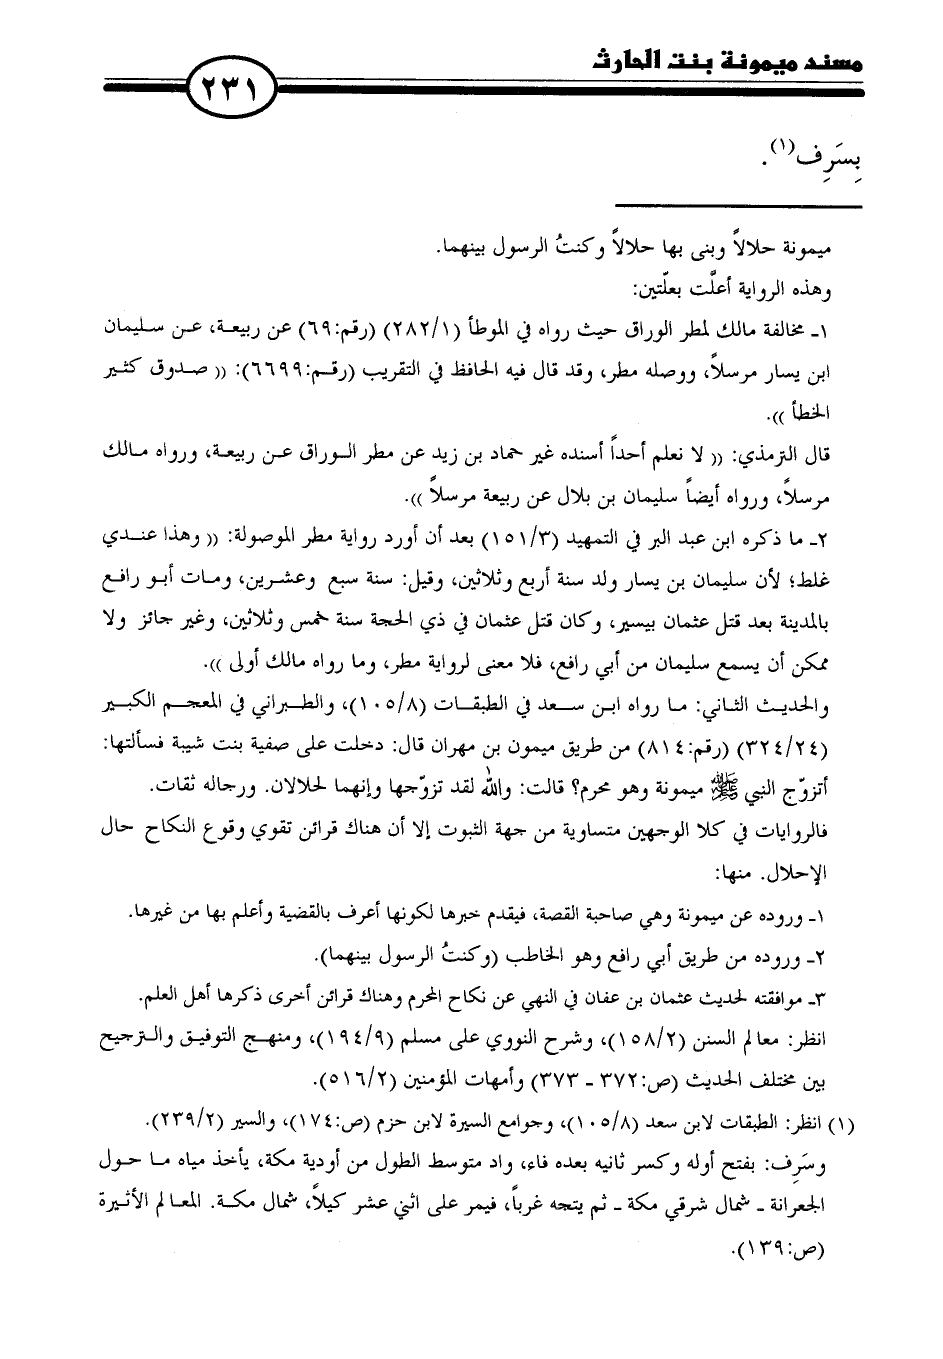 مسند ميمونة بنت الحارث
٢٣١
بِسَرِف(١).
ميمونة حلالاً وبنى بها حلالاً وكنتُ الرسول بينهما.
وهذه الرواية أعلّت بعلّتين:
١- مخالفة مالك لمطر الوراق حيث رواه في الموطأ (٢٨٢/١) (رقم:٦٩) عن ربيعة، عن سليمان
ابن يسار مرسلاً، ووصله مطر، وقد قال فيه الحافظ في التقريب (رقم:٦٦٩٩): (( صدوق كثير
الخطأ )).
قال الترمذي: (( لا نعلم أحداً أسنده غير حماد بن زيد عن مطر الوراق عن ربيعة، ورواه مالك
مرسلاً، ورواه أيضاً سليمان بن بلال عن ربيعة مرسلاً )).
٢- ما ذكره ابن عبد البر في التمهيد (١٥١/٣) بعد أن أورد رواية مطر الموصولة: (( وهذا عندي
غلط؛ لأن سليمان بن يسار ولد سنة أربع وثلاثين، وقيل: سنة سبع وعشرين، ومات أبو رافع
بالمدينة بعد قتل عثمان بيسير، وكان قتل عثمان في ذي الحجة سنة خمس وثلاثين، وغير جائز ولا
ممكن أن يسمع سليمان من أبي رافع، فلا معنى لرواية مطر، وما رواه مالك أولى )).
والحديث الثاني: ما رواه ابن سعد في الطبقات (١٠٥/٨)، والطبراني في المعجم الكبير
(٣٢٤/٢٤) (رقم:٨١٤) من طريق ميمون بن مهران قال: دخلت على صفية بنت شيبة فسألتها:
أتزوّج النبي ﷺ ميمونة وهو محرم؟ قالت: والله لقد تزوّجها وإنهما لحلالان. ورجاله ثقات.
فالروايات في كلا الوجهين متساوية من جهة الثبوت إلا أن هناك قرائن تقوي وقوع النكاح حال
الإحلال. منها:
١- وروده عن ميمونة وهي صاحبة القصة، فيقدم خبرها لكونها أعرف بالقضية وأعلم بها من غيرها.
٢- وروده من طريق أبي رافع وهو الخاطب (وكنتُ الرسول بينهما).
٣- موافقته لحديث عثمان بن عفان في النهي عن نكاح المحرم وهناك قرائن أخرى ذكرها أهل العلم.
انظر: معالم السنن (١٥٨/٢)، وشرح النووي على مسلم (١٩٤/٩)، ومنهج التوفيق والترجيح
بين مختلف الحديث (ص:٣٧٢ - ٣٧٣) وأمهات المؤمنين (٥١٦/٢).
(١) انظر: الطبقات لابن سعد (١٠٥/٨)، وجوامع السيرة لابن حزم (ص:١٧٤)، والسير (٢٣٩/٢).
وسَرِف: بفتح أوله وكسر ثانيه بعده فاء، واد متوسط الطول من أودية مكة، يأخذ مياه ما حول
الجعرانة - شمال شرقي مكة - ثم يتجه غرباً، فيمر على اثني عشر كيلاً، شمال مكة. المعالم الأثيرة
(ص:١٣٩).